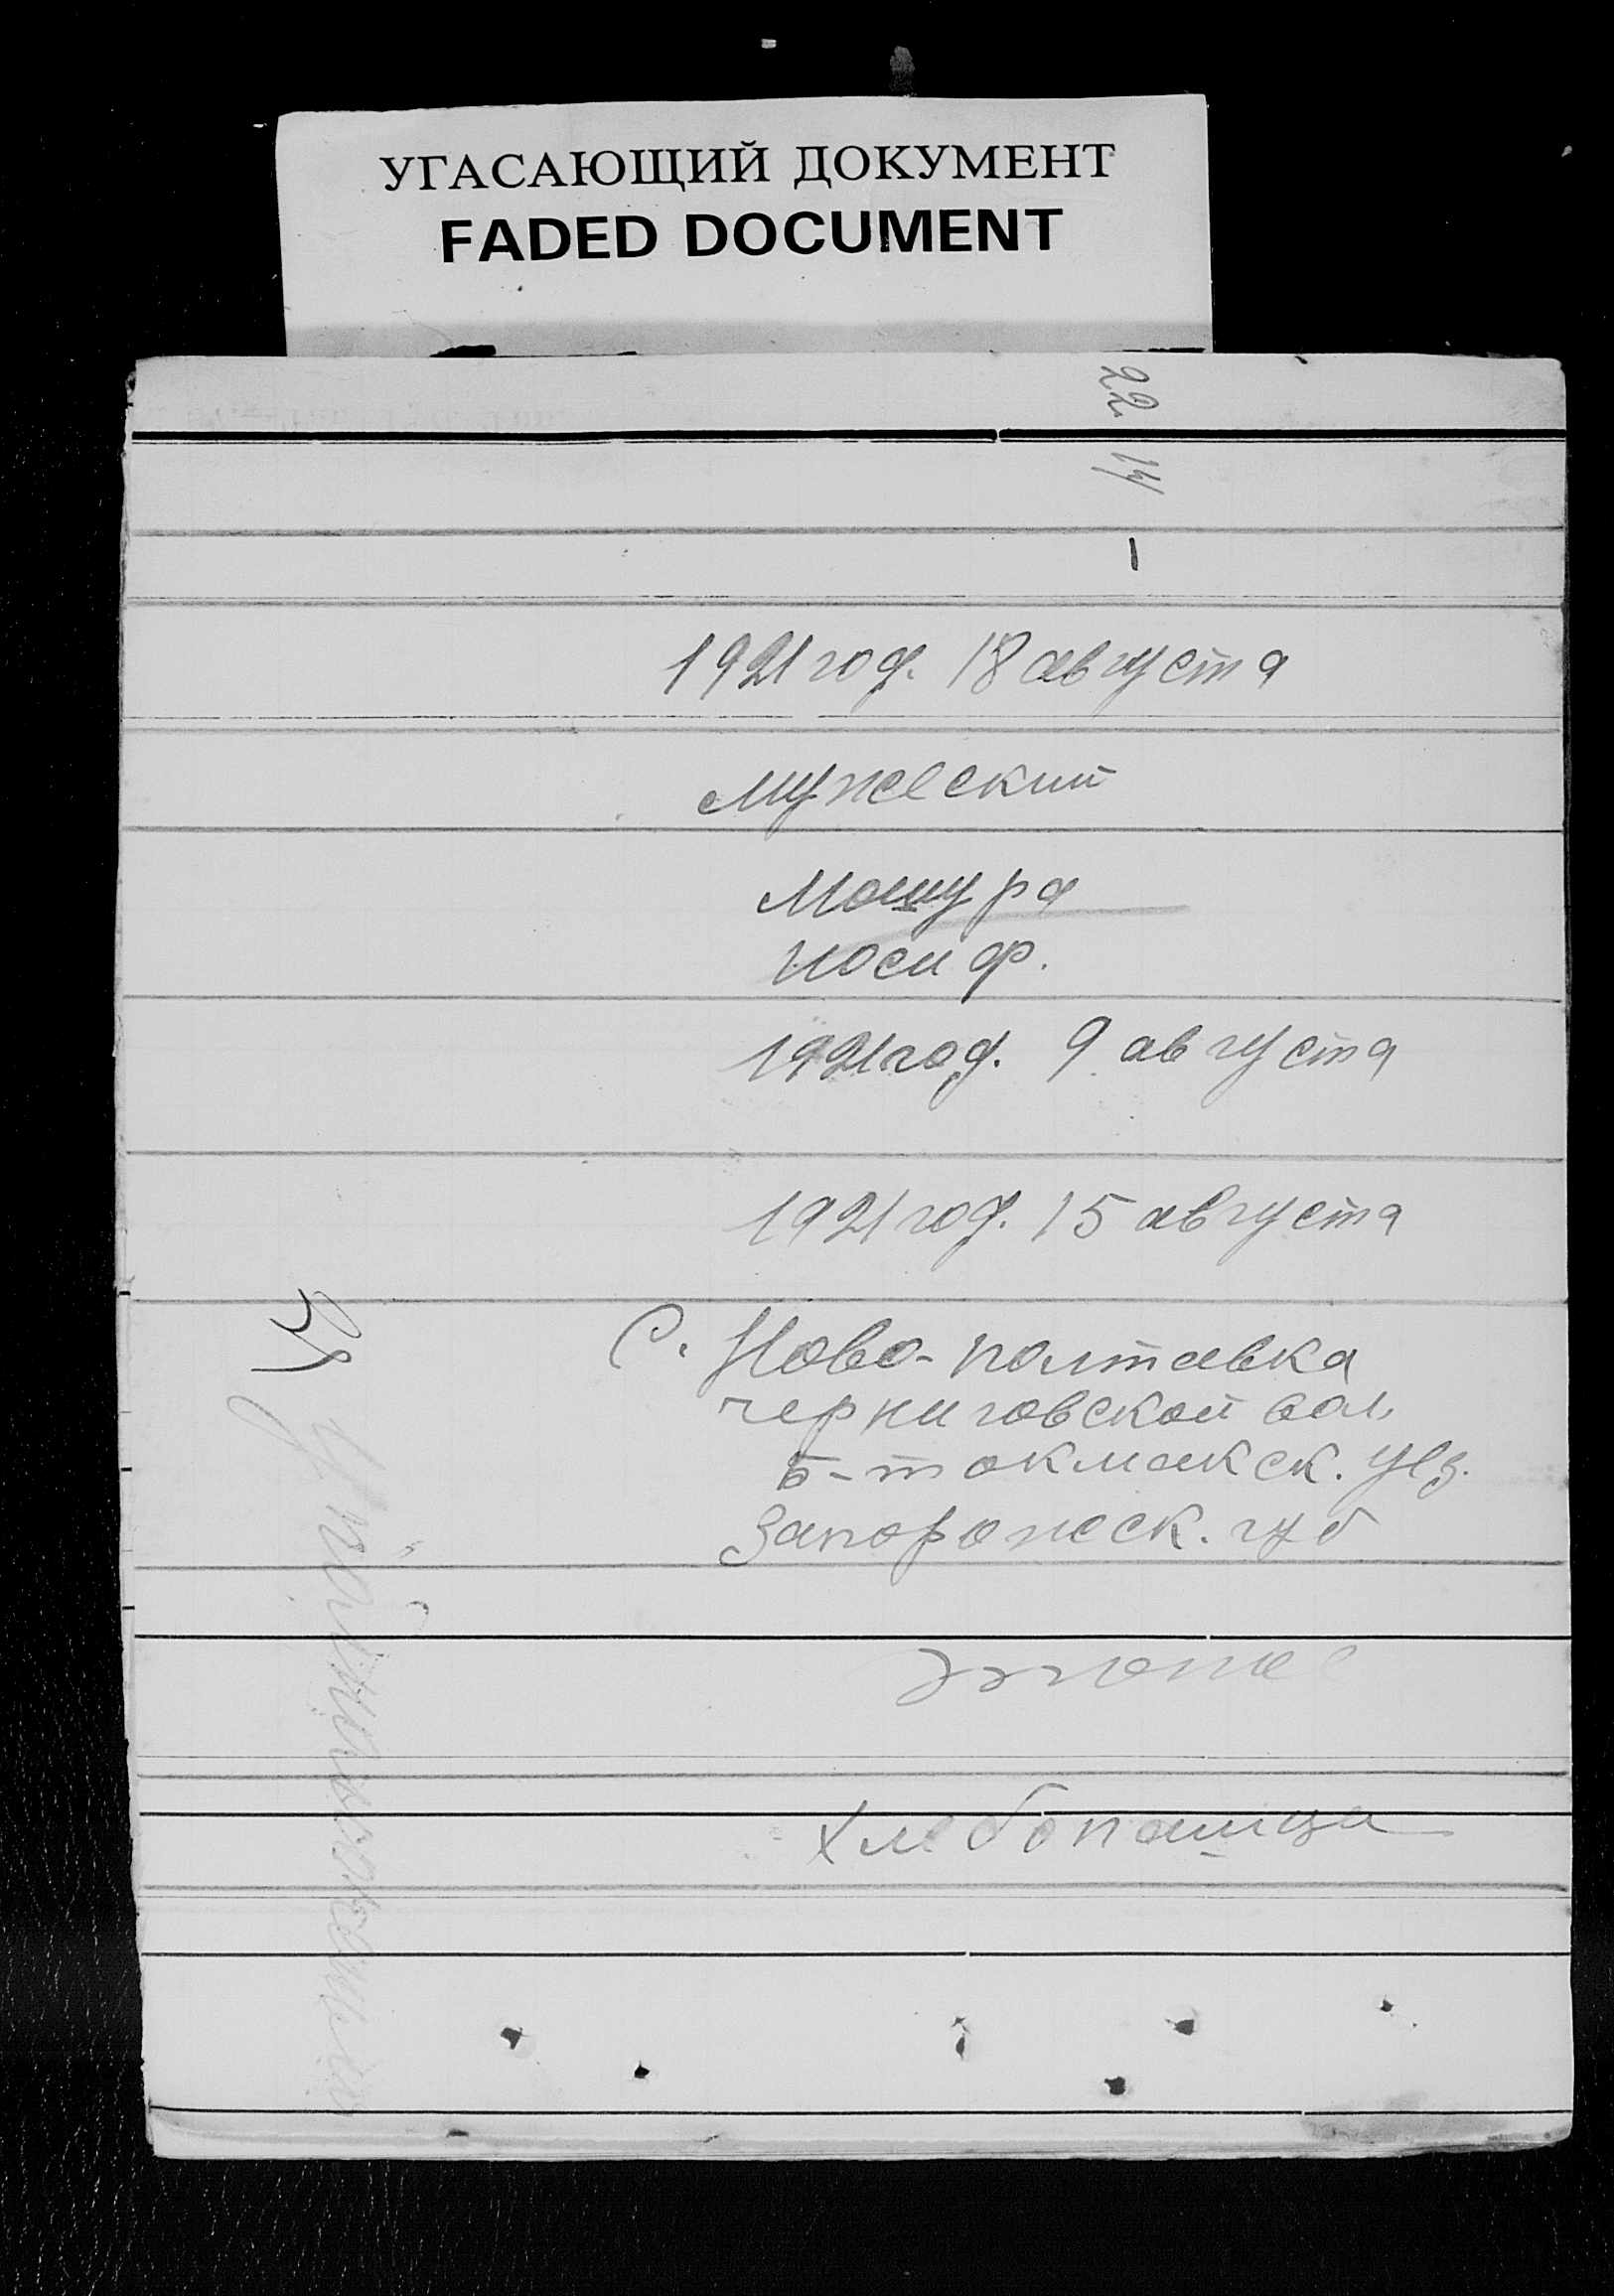 УГАСАЮЩИЙ ДОКУМЕНТ
FADED DOCUMENT
22
1
1921 год. 18 августа
мужеский
Мошура
иосиф.
1921 год. 9 августа
1921 год. 15 августа
с. Ново-полтавка
черниговской вол.
Б-токмакск. уез.
Запорожск. губ
хлебопашца